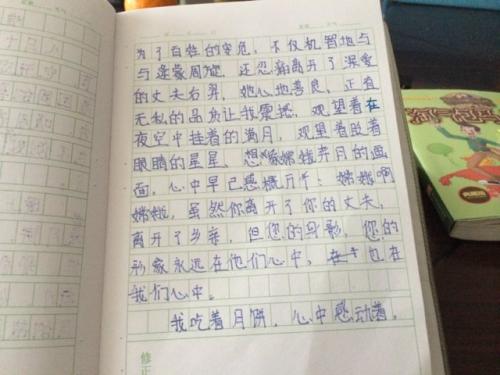 为了百姓的安危，不仅机智地与
与逢蒙周旋，还忍痛离开了深爱
的丈夫后羿，她心地善良、正直
无私的品质让我震撼。观望着在
夜空中挂着的满月，观望着眨着
眼睛的星星，想嫦娥奔月的画
面，心中早已感慨万千：嫦娥啊
嫦娥，虽然你离开了你的丈夫，
离开了乡亲，但您的身影，您的
形象永远在他们心中，也在
我们心中。
我吃着月饼，心中感动着。
修正